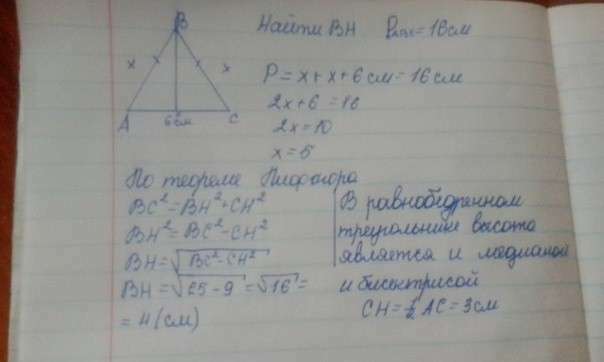 Найти BH  P_ABC = 16см
B
x x
A 6см C
P = x + x + 6 см = 16 см
2x + 6 = 16
2x = 10
x = 5
По теореме Пифагора
BC² = BH² + CH²
BH² = BC² - CH²
BH = √BC² - CH²
BH = √25 - 9 = √16 =
= 4 (см)
В равнобедренном
треугольнике высота
является и медианой
и биссектрисой
CH = ½ AC = 3см